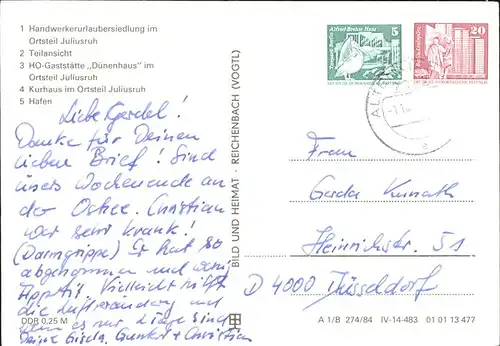 1 Handwerkerurlaubersiedlung im
Ortsteil Juliusruh
2 Teilansicht
3 HO-Gaststätte „Dünenhaus" im
Ortsteil Juliusruh
4 Kurhaus im Ortsteil Juliusruh
5 Hafen
Liebe Gerdel!
Danke für Deinen
lieben Brief! Sind
übers Wochenende an
der Ostsee. Christian
war sehr krank!
(Darmgrippe) Er hat so
abgenommen und wenig
Appetit. Vielleicht hilft
die Luftveränderung und
es nur Tage sind
Deine Gisela, Gunter + Christian
DDR 0,25 M
BILD UND HEIMAT · REICHENBACH (VOGTL)
Alfred-Brehm-Haus
Tierpark Berlin
5
DDR
20
DDR
ALT
Frau
Gerda Kurnath
Heinrichstr. 51
D 4000 Düsseldorf
A 1/B 274/84 IV-14-483 01 01 13 477